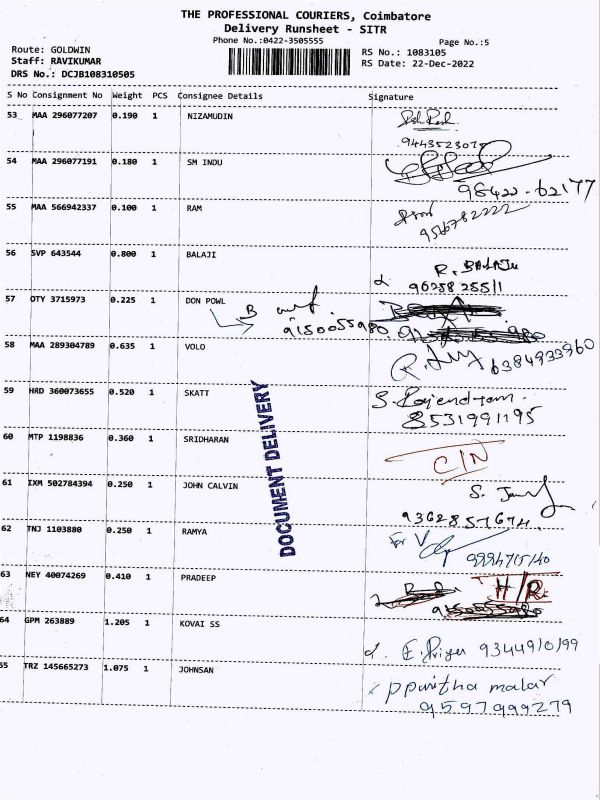 THE PROFESSIONAL COURIERS, Coimbatore
Delivery Runsheet - SITR
Phone No.:0422-3505555
Page No.:5
Route: GOLDWIN
RS No.: 1083105
Staff: RAVIKUMAR
RS Date: 22-Dec-2022
DRS No.: DCJB108310505
S No Consignment No Weight PCS Consignee Details Signature
53 MAA 296077207 0.190 1 NIZAMUDIN
54 MAA 296077191 0.180 1 SM INDU
98422-62177
55 MAA 566942337 0.100 1 RAM
9566782222
56 SVP 643544 0.800 1 BALAJI
R. BALAJI
9625825511
57 OTY 3715973 0.225 1 DON POWL
B
9150055980
58 MAA 289304789 0.635 1 VOLO
6384933960
59 HRD 360073655 0.520 1 SKATT
S. Rajendran.
8531991195
60 MTP 1198836 0.360 1 SRIDHARAN
C/N
61 IXM 502784394 0.250 1 JOHN CALVIN
9362857674
62 TNJ 1103880 0.250 1 RAMYA
For V
63 NEY 40074269 0.410 1 PRADEEP
H/R
64 GPM 263889 1.205 1 KOVAI SS
E. Priya 9344910199
65 TRZ 145665273 1.075 1 JOHNSAN
ppavitha malar
9597999279
DOCUMENT DELIVERY